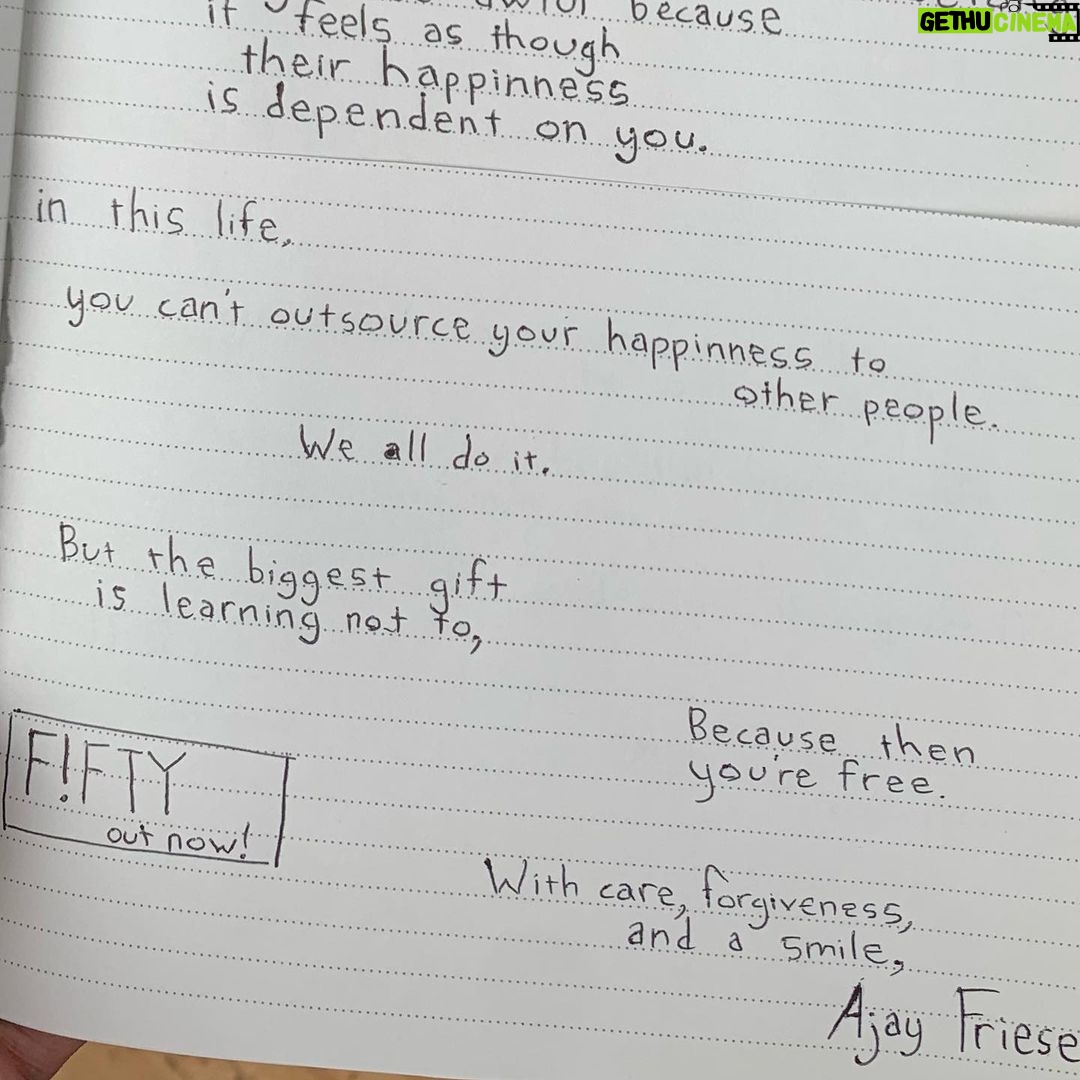 because
GETHUCINEMA
it feels as though
their happinness
is dependent on you.
in this life,
you can't outsource your happinness to
other people.
We all do it.
But the biggest gift
is learning not to,
Because then
you're free.
F!FTY
out now!
With care, forgiveness,
and a smile,
Ajay Friese